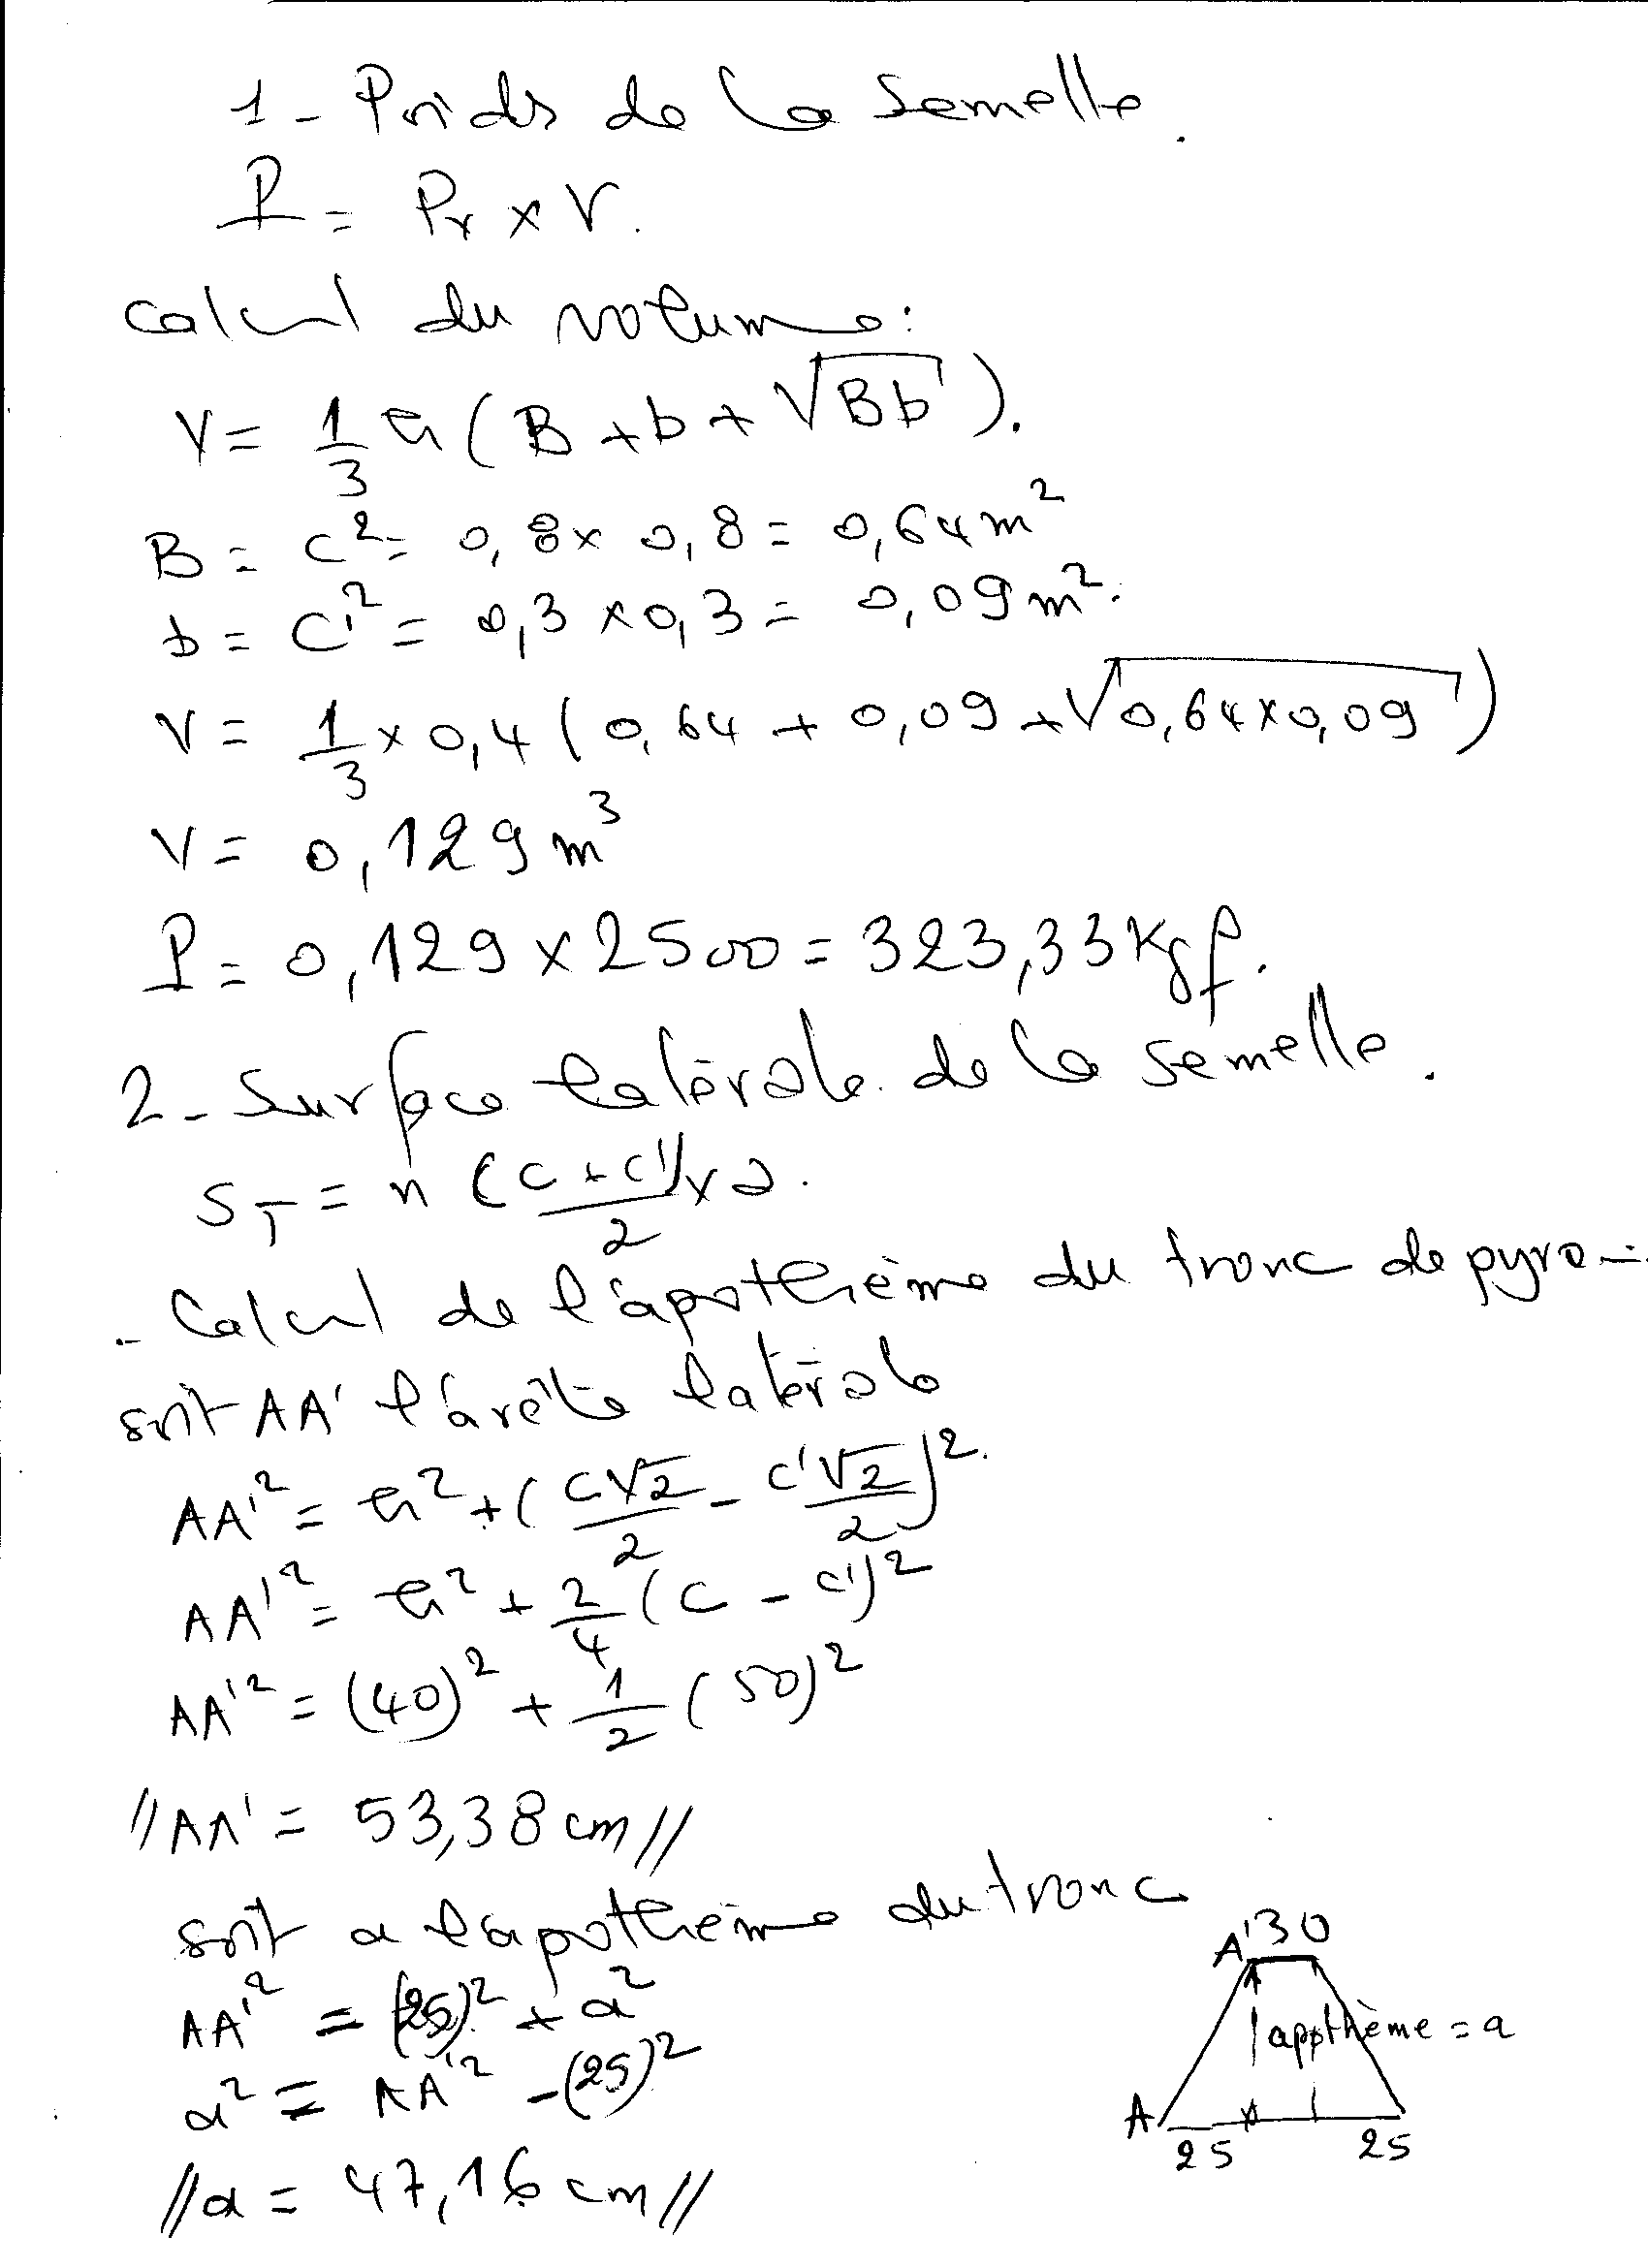 1- Poids de la semelle.
P = Pr x V.
Calcul du volume:
V = 1/3 h (B + b + √Bb).
B = C² = 0,8 x 0,8 = 0,64 m²
b = C'² = 0,3 x 0,3 = 0,09 m².
V = 1/3 x 0,4 (0,64 + 0,09 + √0,64 x 0,09)
V = 0,129 m³
P = 0,129 x 2500 = 323,33 Kgf.
2- Surface latérale de la semelle.
S_T = n (C + C')/2 x a.
- Calcul de l'apothème du tronc de pyra-
soit AA' l'arête latérale
AA'² = h² + (C√2/2 - C'√2/2)².
AA'² = h² + 2/4 (C - C')²
AA'² = (40)² + 1/2 (50)²
//AA' = 53,38 cm//
soit a l'apothème du tronc
AA'² = (25)² + a²
a² = AA'² - (25)²
//a = 47,16 cm//
A' 30
appthème = a
A
25 25